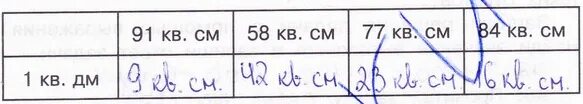 91 кв. см 58 кв. см 77 кв. см 84 кв. см
1 кв. дм 9 кв. см. 42 кв. см. 23 кв. см. 16 кв. см.